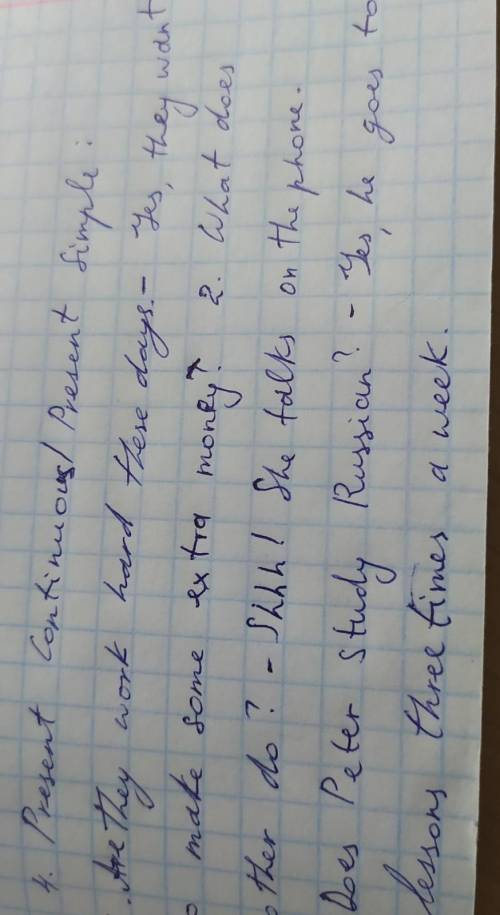 4. Present Continuous/Present Simple:
. Are they work hard these days. - Yes, they want
make some extra money? 2. What does
other do? - Shhh! She talks on the phone.
Does Peter study Russian? - Yes, he goes to
lessons three times a week.